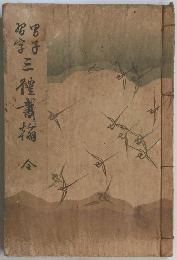 男子
習字
三體書翰
全